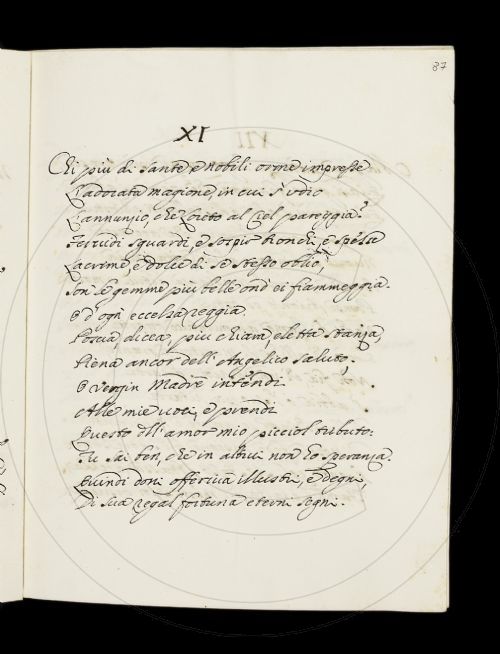 87
XI
Chi più di sante e nobili orme impresse
L'adorata magione, in cui s'udio
L'annunzio, che Loreto al Ciel pareggia?
Fervidi sguardi, e sospir tronchi, e spesse
Lacrime, e dolce di se stesso oblio,
Son le gemme più belle ond' ei fiammeggia.
O d'ogni eccelsa reggia
Poscia, dicea, più chiara, eletta stanza,
Piena ancor dell' Angelico saluto,
O Vergin Madre intendi
Alle mie voci, e prendi
Questo dell' amor mio picciol tributo:
Tu sai ben, che in altrui non ho speranza.
Quindi doni offeriva illustri, e degni,
Di sua regal fortuna eterni segni.